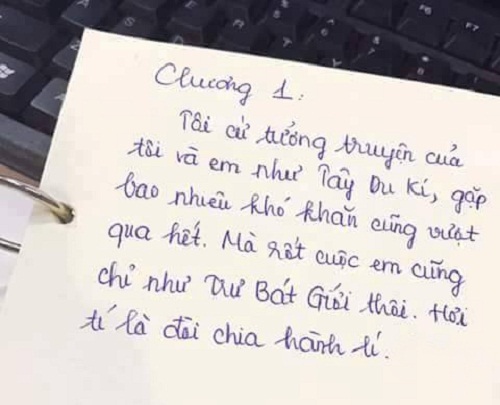 Chương 1:
Tôi cứ tưởng truyện của
tôi và em như Tây Du Kí, gặp
bao nhiêu khó khăn cũng vượt
qua hết. Mà rốt cuộc em cũng
chỉ như Trư Bát Giới thôi. Hơi
tí là đòi chia hành lí.